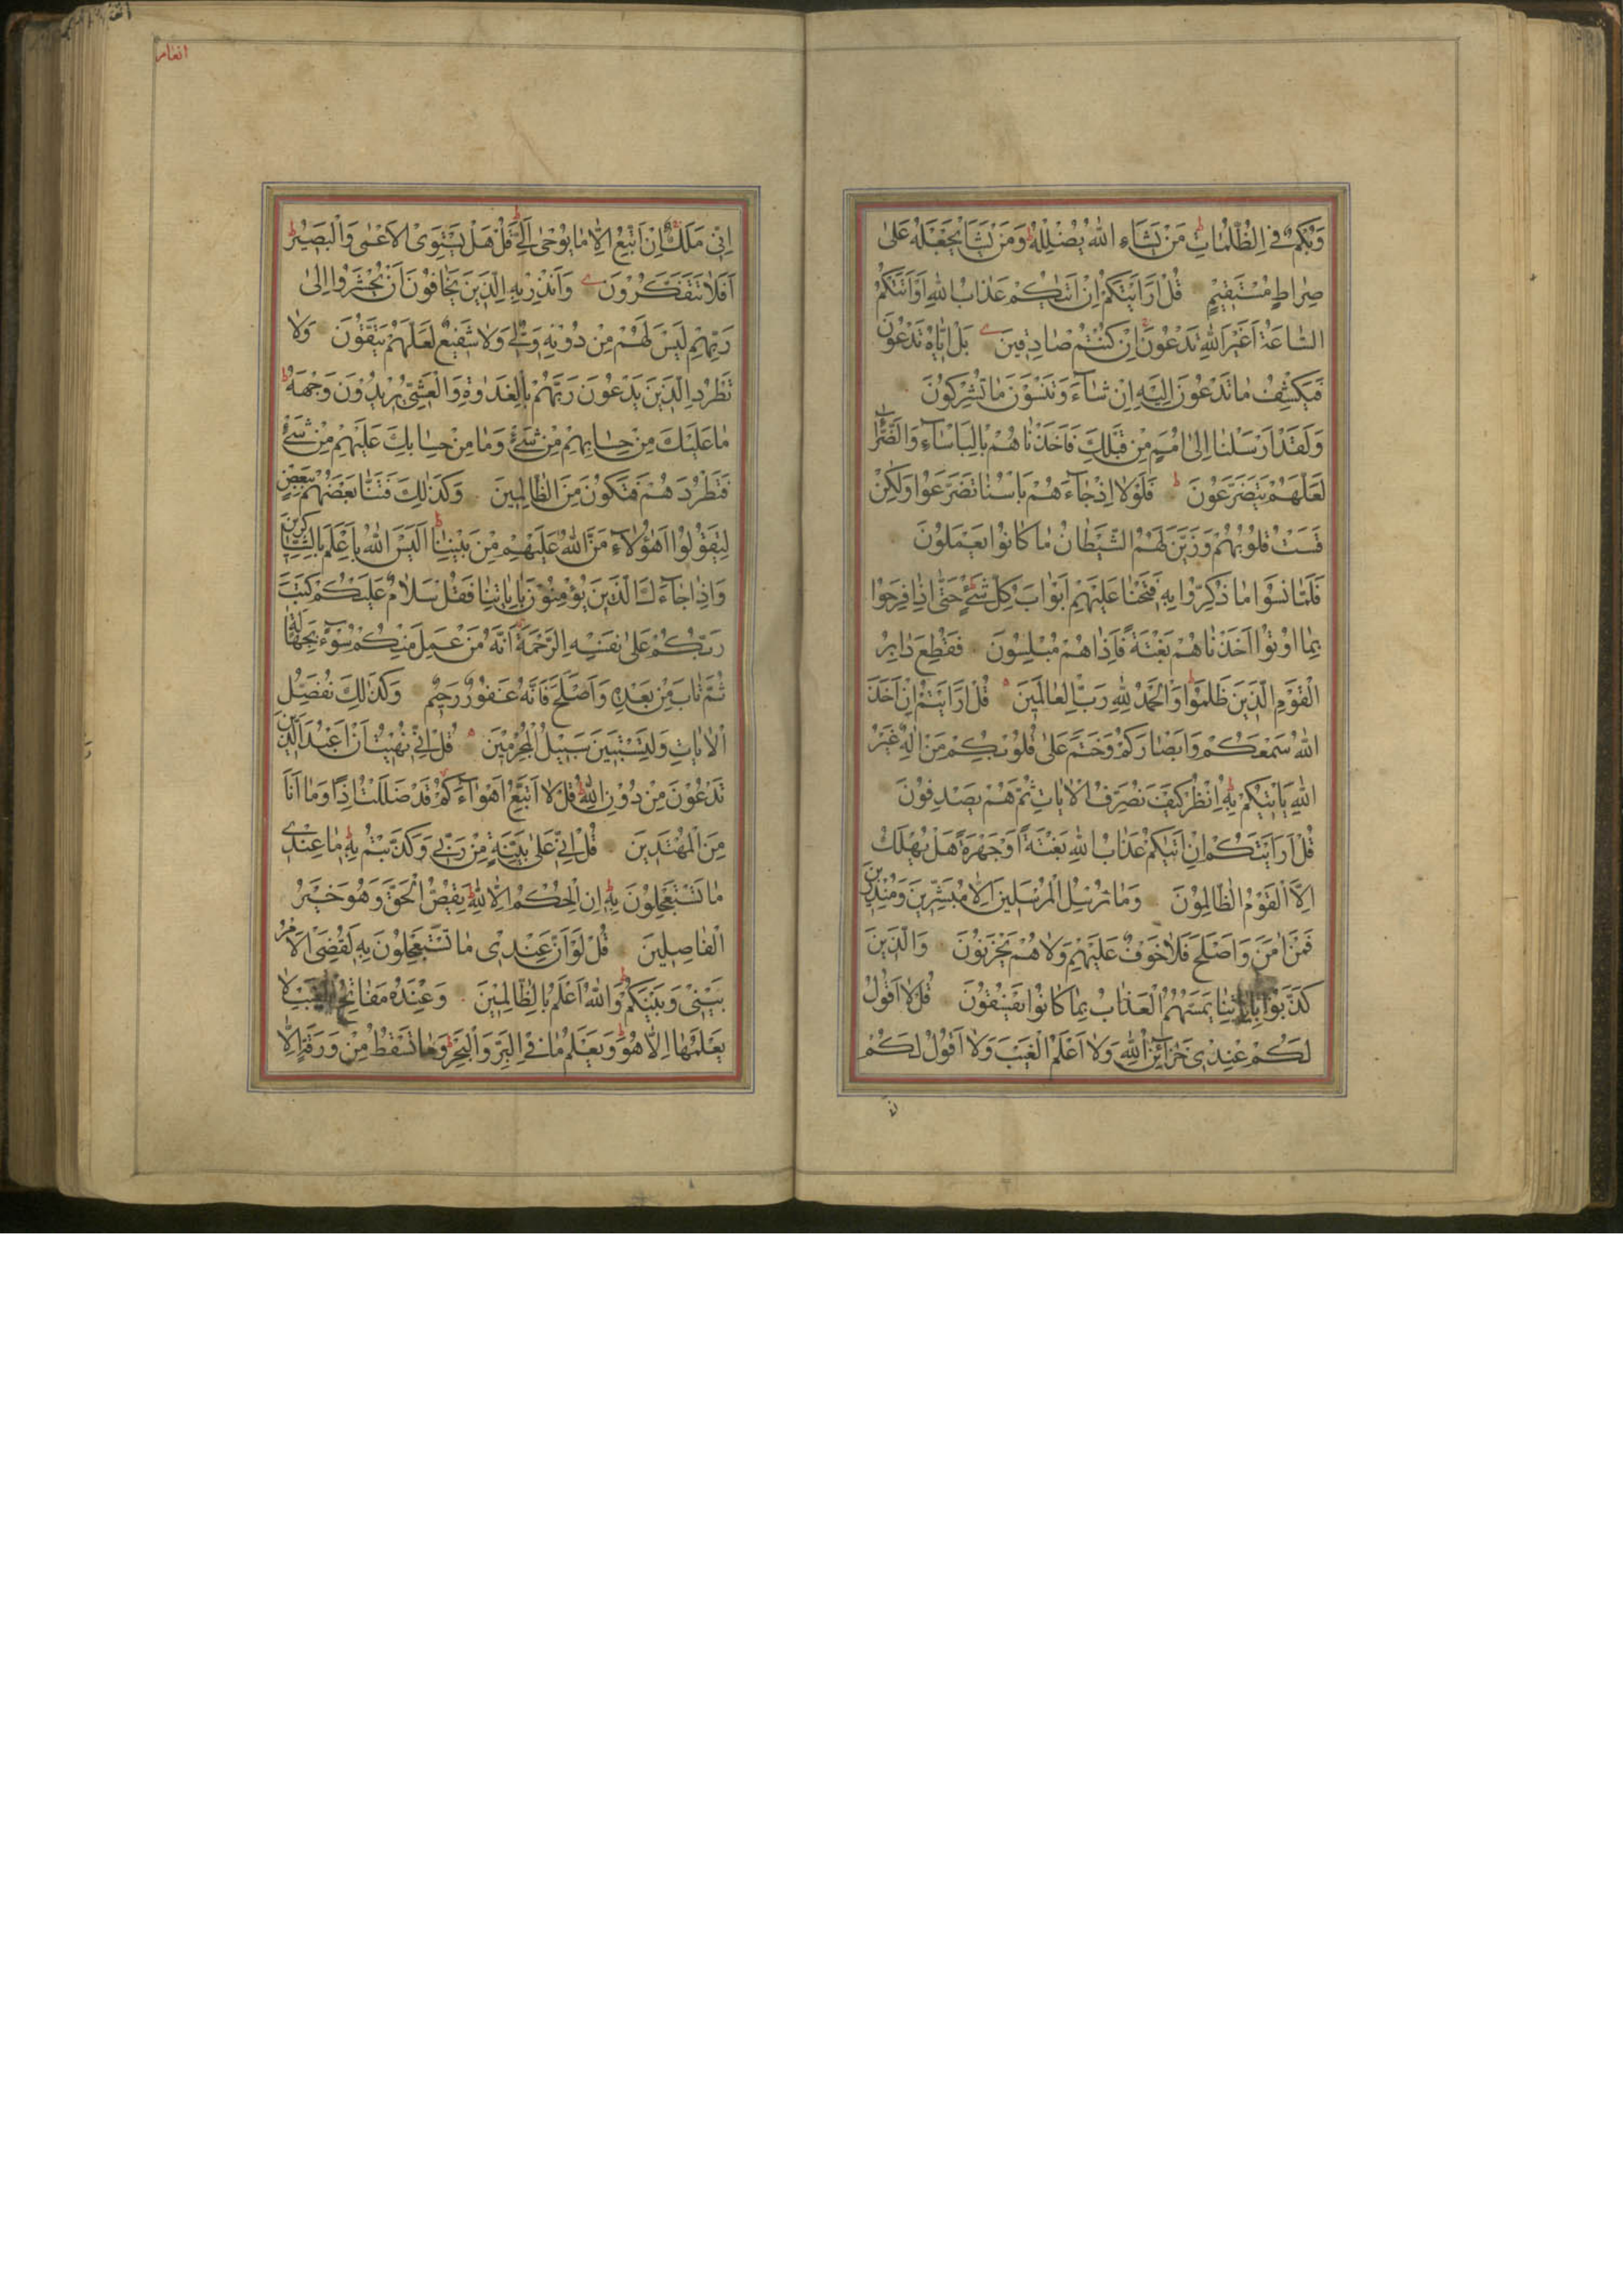 وَبُكْمٌ فِي الظُّلُمَاتِ مَنْ يَشَاءِ اللّٰهُ يُضْلِلْهُ وَمَنْ يَشَأْ يَجْعَلْهُ عَلَىٰ
صِرَاطٍ مُسْتَقِيمٍ قُلْ اَرَاَيْتَكُمْ اِنْ اَتٰيكُمْ عَذَابُ اللّٰهِ اَوْ اَتَتْكُمُ
السَّاعَةُ اَغَيْرَ اللّٰهِ تَدْعُونَ اِنْ كُنْتُمْ صَادِقِينَ بَلْ اِيَّاهُ تَدْعُونَ
فَيَكْشِفُ مَا تَدْعُونَ اِلَيْهِ اِنْ شَآءَ وَتَنْسَوْنَ مَا تُشْرِكُونَ
وَلَقَدْ اَرْسَلْنَا اِلىٰ اُمَمٍ مِنْ قَبْلِكَ فَاَخَذْنَاهُمْ بِالْبَاْسَآءِ وَالضَّرَّآءِ
لَعَلَّهُمْ يَتَضَرَّعُونَ فَلَوْلَا اِذْ جَآءَهُمْ بَاْسُنَا تَضَرَّعُوا وَلٰكِنْ
قَسَتْ قُلُوبُهُمْ وَزَيَّنَ لَهُمُ الشَّيْطَانُ مَا كَانُوا يَعْمَلُونَ
فَلَمَّا نَسُوا مَا ذُكِّرُوا بِهِ فَتَحْنَا عَلَيْهِمْ اَبْوَابَ كُلِّ شَيْءٍ حَتّٰى اِذَا فَرِحُوا
بِمَا اُوتُوا اَخَذْنَاهُمْ بَغْتَةً فَاِذَا هُمْ مُبْلِسُونَ فَقُطِعَ دَابِرُ
الْقَوْمِ الَّذِينَ ظَلَمُوا وَالْحَمْدُ لِلّٰهِ رَبِّ الْعَالَمِينَ قُلْ اَرَاَيْتُمْ اِنْ اَخَذَ
اللّٰهُ سَمْعَكُمْ وَاَبْصَارَكُمْ وَخَتَمَ عَلىٰ قُلُوبِكُمْ مَنْ اِلٰهٌ غَيْرُ
اللّٰهِ يَاْتِيكُمْ بِهِ اُنْظُرْ كَيْفَ نُصَرِّفُ الْاٰيَاتِ ثُمَّ هُمْ يَصْدِفُونَ
قُلْ اَرَاَيْتَكُمْ اِنْ اَتٰيكُمْ عَذَابُ اللّٰهِ بَغْتَةً اَوْ جَهْرَةً هَلْ يُهْلَكُ
اِلَّا الْقَوْمُ الظَّالِمُونَ وَمَا نُرْسِلُ الْمُرْسَلِينَ اِلَّا مُبَشِّرِينَ وَمُنْذِرِينَ
فَمَنْ اٰمَنَ وَاَصْلَحَ فَلَا خَوْفٌ عَلَيْهِمْ وَلَا هُمْ يَحْزَنُونَ وَالَّذِينَ
كَذَّبُوا بِاٰيَاتِنَا يَمَسُّهُمُ الْعَذَابُ بِمَا كَانُوا يَفْسُقُونَ قُلْ لَا اَقُولُ
لَكُمْ عِنْدِي خَزَآئِنُ اللّٰهِ وَلَا اَعْلَمُ الْغَيْبَ وَلَا اَقُولُ لَكُمْ
انعام
اِنِّي مَلَكٌ اِنْ اَتَّبِعُ اِلَّا مَا يُوحىٰ اِلَيَّ قُلْ هَلْ يَسْتَوِي الْاَعْمىٰ وَالْبَصِيرُ
اَفَلَا تَتَفَكَّرُونَ وَاَنْذِرْ بِهِ الَّذِينَ يَخَافُونَ اَنْ يُحْشَرُوا اِلىٰ
رَبِّهِمْ لَيْسَ لَهُمْ مِنْ دُونِهِ وَلِيٌّ وَلَا شَفِيعٌ لَعَلَّهُمْ يَتَّقُونَ وَلَا
تَطْرُدِ الَّذِينَ يَدْعُونَ رَبَّهُمْ بِالْغَدٰوةِ وَالْعَشِيِّ يُرِيدُونَ وَجْهَهُ
مَا عَلَيْكَ مِنْ حِسَابِهِمْ مِنْ شَيْءٍ وَمَا مِنْ حِسَابِكَ عَلَيْهِمْ مِنْ شَيْءٍ
فَتَطْرُدَهُمْ فَتَكُونَ مِنَ الظَّالِمِينَ وَكَذٰلِكَ فَتَنَّا بَعْضَهُمْ بِبَعْضٍ
لِيَقُولُوا اَهٰؤُلَآءِ مَنَّ اللّٰهُ عَلَيْهِمْ مِنْ بَيْنِنَا اَلَيْسَ اللّٰهُ بِاَعْلَمَ بِالشَّاكِرِينَ
وَاِذَا جَآءَكَ الَّذِينَ يُؤْمِنُونَ بِاٰيَاتِنَا فَقُلْ سَلَامٌ عَلَيْكُمْ كَتَبَ
رَبُّكُمْ عَلىٰ نَفْسِهِ الرَّحْمَةَ اَنَّهُ مَنْ عَمِلَ مِنْكُمْ سُوٓءً بِجَهَالَةٍ
ثُمَّ تَابَ مِنْ بَعْدِهِ وَاَصْلَحَ فَاَنَّهُ غَفُورٌ رَحِيمٌ وَكَذٰلِكَ نُفَصِّلُ
الْاٰيَاتِ وَلِتَسْتَبِينَ سَبِيلُ الْمُجْرِمِينَ قُلْ اِنِّي نُهِيتُ اَنْ اَعْبُدَ الَّذِينَ
تَدْعُونَ مِنْ دُونِ اللّٰهِ قُلْ لَا اَتَّبِعُ اَهْوَآءَكُمْ قَدْ ضَلَلْتُ اِذًا وَمَا اَنَا
مِنَ الْمُهْتَدِينَ قُلْ اِنِّي عَلىٰ بَيِّنَةٍ مِنْ رَبِّي وَكَذَّبْتُمْ بِهِ مَا عِنْدِي
مَا تَسْتَعْجِلُونَ بِهِ اِنِ الْحُكْمُ اِلَّا لِلّٰهِ يَقُصُّ الْحَقَّ وَهُوَ خَيْرُ
الْفَاصِلِينَ قُلْ لَوْ اَنَّ عِنْدِي مَا تَسْتَعْجِلُونَ بِهِ لَقُضِيَ الْاَمْرُ
بَيْنِي وَبَيْنَكُمْ وَاللّٰهُ اَعْلَمُ بِالظَّالِمِينَ وَعِنْدَهُ مَفَاتِحُ الْغَيْبِ لَا
يَعْلَمُهَا اِلَّا هُوَ وَيَعْلَمُ مَا فِي الْبَرِّ وَالْبَحْرِ وَمَا تَسْقُطُ مِنْ وَرَقَةٍ اِلَّا